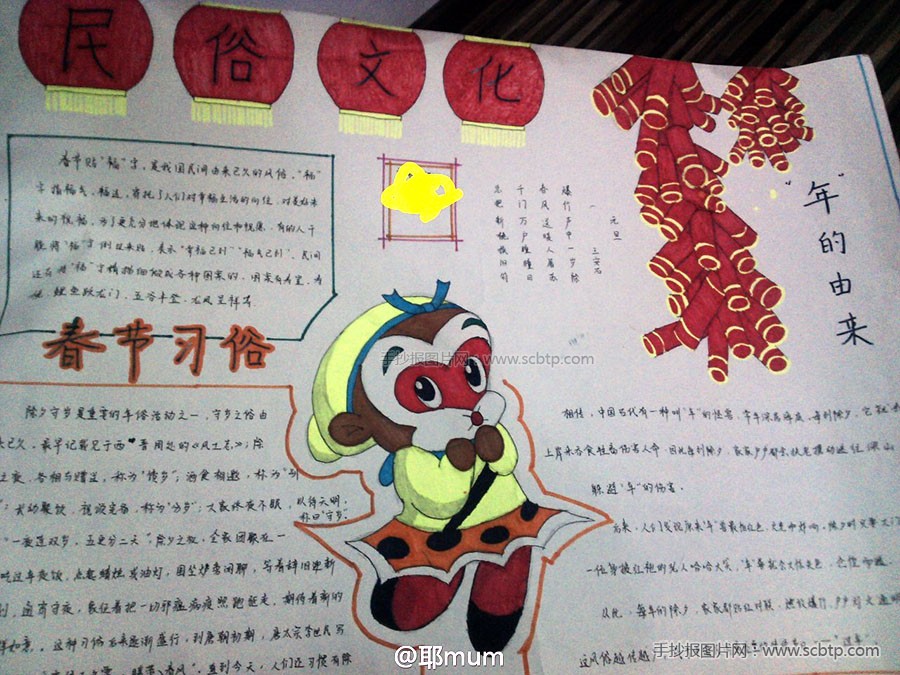 民俗文化
春节贴"福"字，是我国民间由来已久的风俗。"福"
字指福气、福运，寄托了人们对幸福生活的向往，对美好未
来的祝愿。为了更充分地体现这种向往和祝愿，有的人干
脆将"福"字倒过来贴，表示"幸福已到""福气已到"。民间
还有将"福"字精描细做成各种图案的，图案有寿星、寿
桃、鲤鱼跃龙门、五谷丰登、龙凤呈祥等。
元旦
王安石
爆竹声中一岁除
春风送暖入屠苏
千门万户曈曈日
总把新桃换旧符
"年"的由来
春节习俗
除夕守岁是重要的年俗活动之一，守岁之俗由
来已久。最早记载见于西晋周处的《风土志》：除
之夜，各相与赠送，称为"馈岁"；酒食相邀，称为"别
"；长幼聚饮，祝颂完备，称为"分岁"；大家终夜不眠，以待天明，
称曰"守岁"。
"一夜连双岁，五更分二天"，除夕之夜，全家团聚在一
吃过年夜饭，点起蜡烛或油灯，围坐炉旁闲聊，等着辞旧迎新
刻，通宵守夜，象征着把一切邪瘟病疫照跑驱走，期待着新的
祥如意。这种习俗后来逐渐盛行，到唐朝初期，唐太宗李世民写
直到今天，人们还习惯有除
相传，中国古代有一种叫"年"的怪兽，
家家户户
躲避"年"的伤害。
后来，人们发现原来"年"害最怕红色、火光和炸响。
一位身披红袍的老人哈哈大笑，"年"
从此，每年的除夕，家家都贴红对联、燃放爆竹，户户
这风俗越传越广
手抄报图片网：www.scbtp.com
手抄报图片网：www.scbtp.com
@耶mum